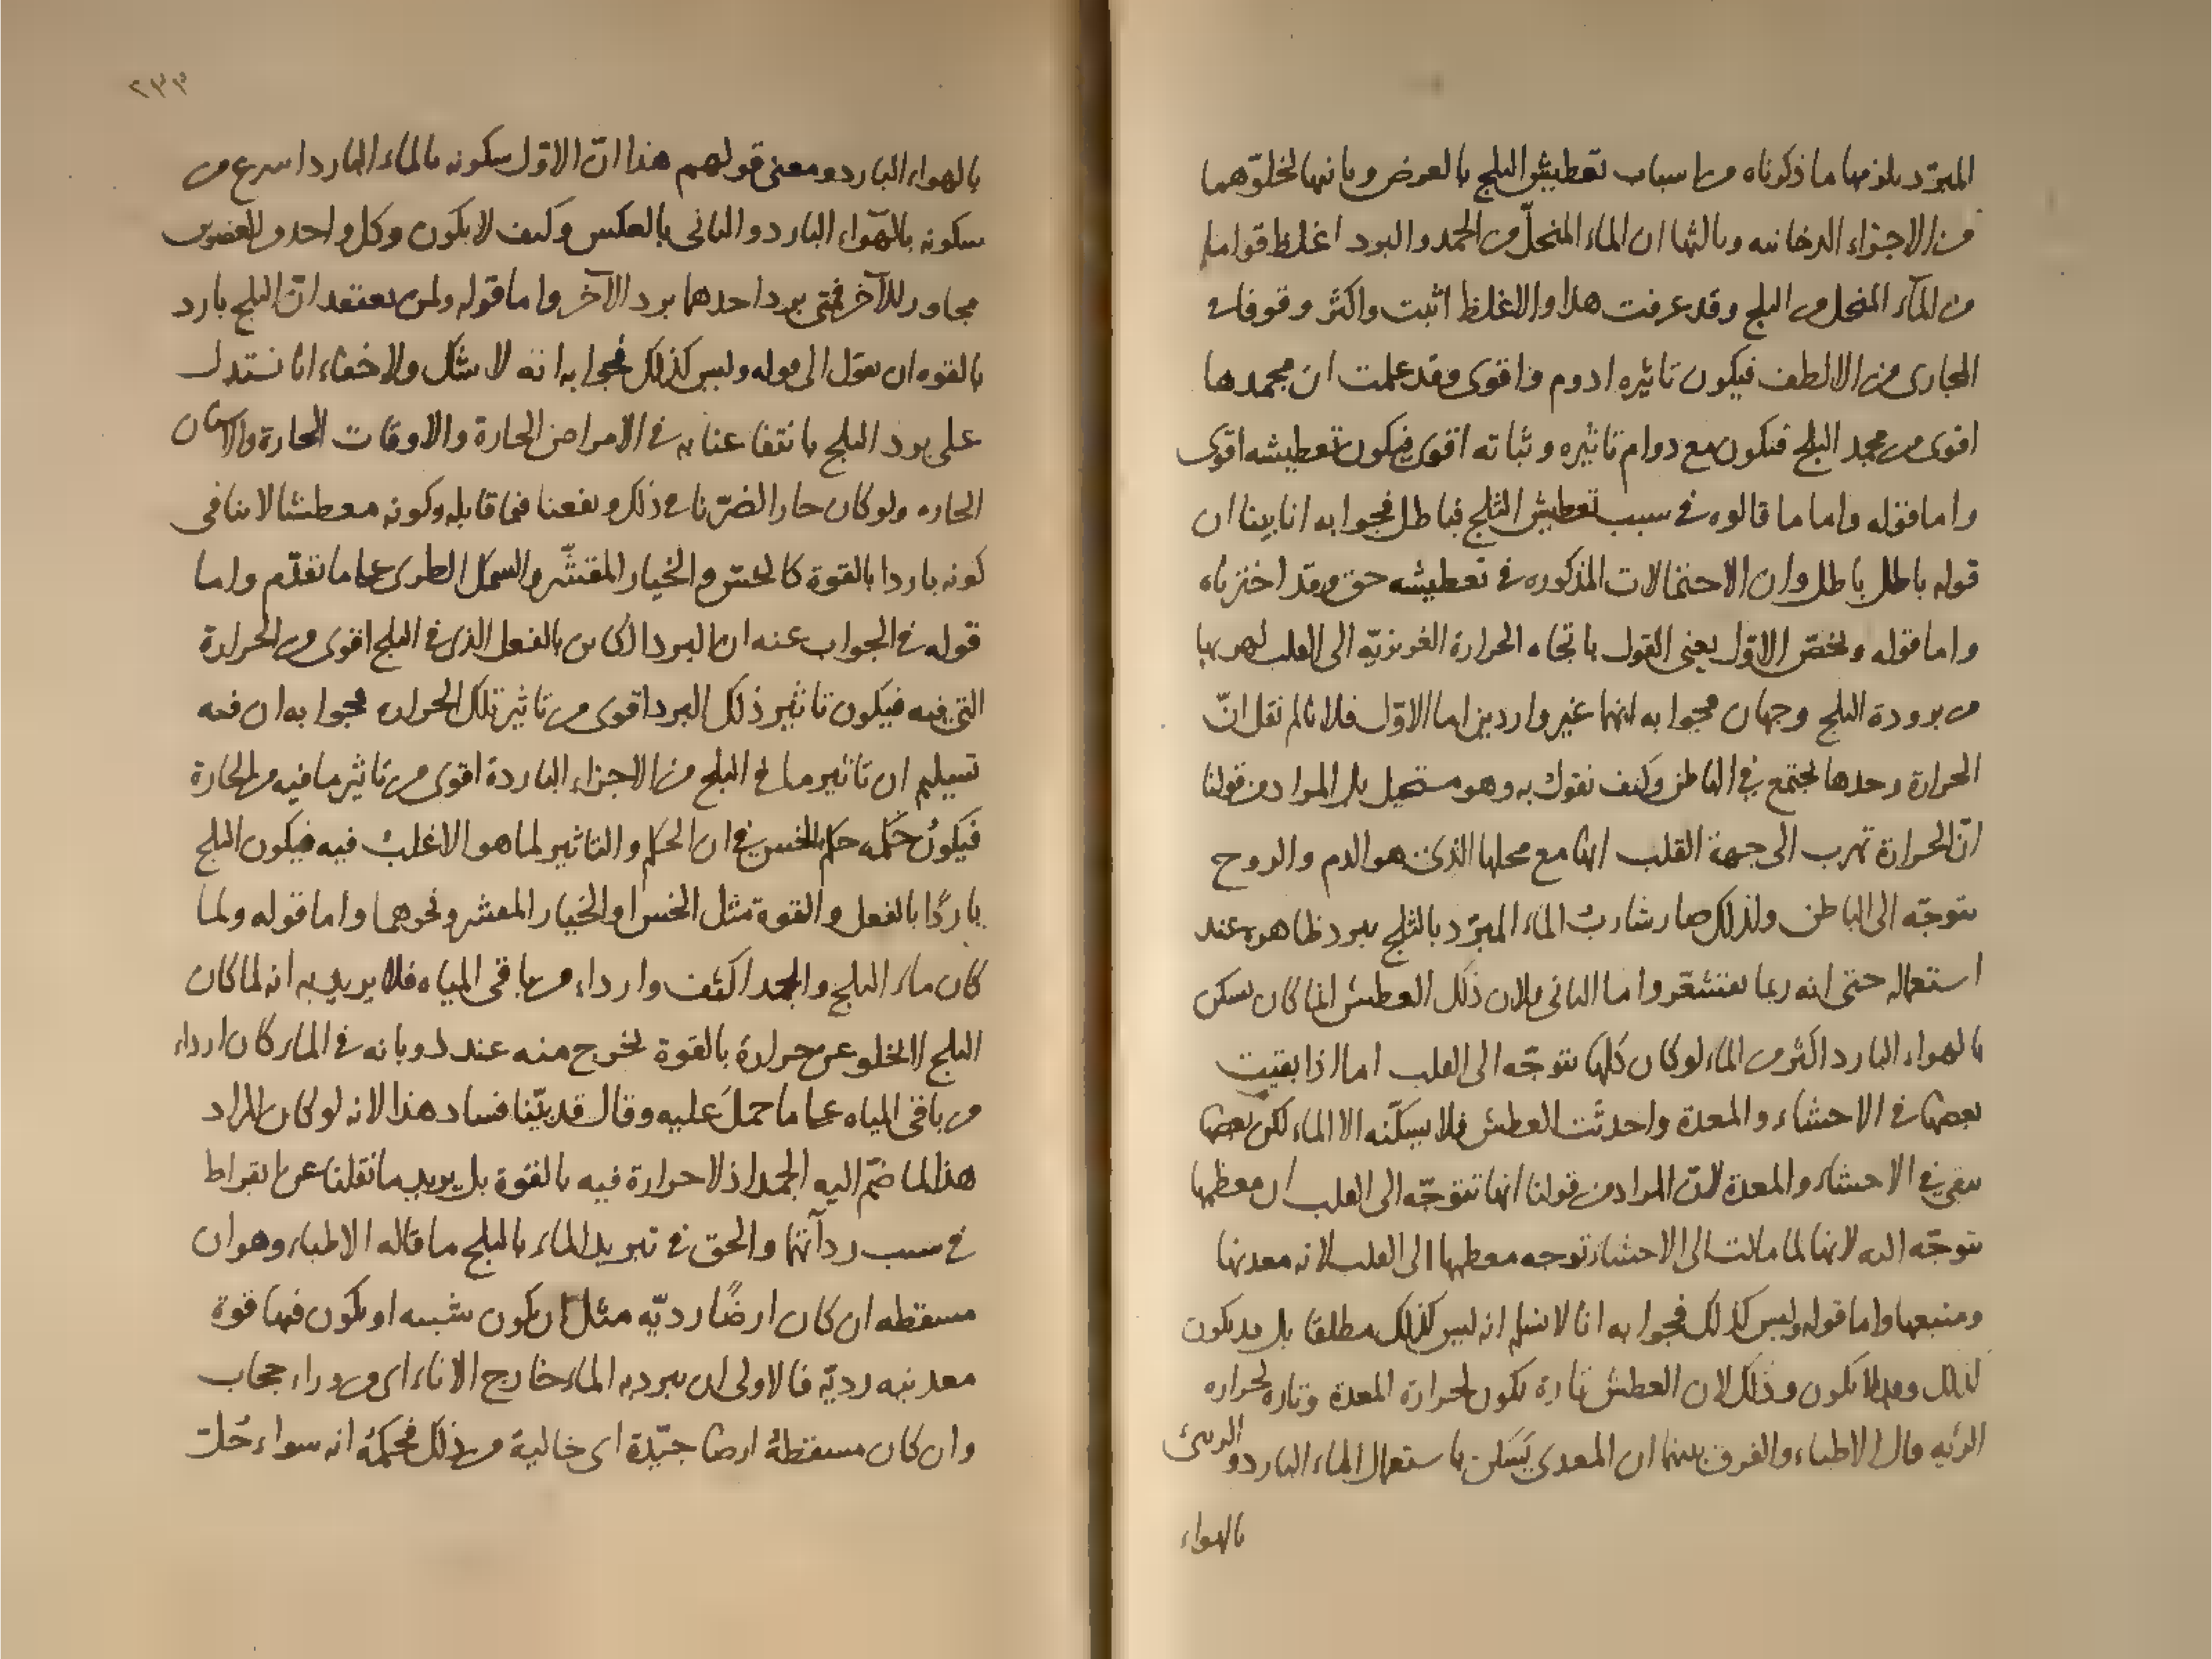 المبرّد بلزمها ما ذكرناه من اسباب تعطيش الثلج بالعرض وثانيها لخلوّهما
من الاجزاء الدخانيه وثالثها ان الماء المنحلّ من الجمد والبرد اغلظ قواما
من المآء المنحل من الثلج وقد عرفت هذا والاغلظ اثبت واكثر وقوفا في
المجارى من الالطف فيكون تاثيره ادوم واقوى وقد علمت ان مجمدها
اقوى من مجمد الثلج فيكون مع دوام تاثيره وثباته اقوى فيكون تعطيشه اقوى
واما قوله واما ما قالوه في سبب تعطيش الثلج فباطل فجوابه انا بينا ان
قوله باطل باطل وان الاحتمالات المذكوره في تعطيشه حق وقد اخترناه
واما قوله ويخصّ الاوّل يعني القول باتجاه الحرارة الغريزيّة الى القلب لهربها
من برودة الثلج وجهان فجوابه انهما غير واردين اما الاوّل فلانا لم نقل انّ
الحرارة وحدها تجتمع في الباطن وكيف نقول به وهو مستحيل بل المراد من قولنا
انّ الحرارة تهرب الى جهة القلب انها مع محلها الذى هو الدم والروح
تتوجّه الى الباطن ولذلك صار شارب الماء المبرّد بالثلج يبرد ظاهره عند
استعماله حتى انه ربما يقشعّر واما الثاني فلان ذلك العطش انما كان يسكن
بالهواء البارد اكثر من الماء لو كان كلها تتوجّه الى القلب اما اذا بقيت
بعضها في الاحشاء والمعدة واحدثت العطش فلا يسكّنه الا الماء لكن بعضها
يبقى في الاحشاء والمعدة لانّ المراد من قولنا انها تتوجّه الى القلب ان معظمها
تتوجّه اليه لانها لما مالت الى الاحشاء توجه معظمها الى القلب لانه معدنها
ومنبعها واما قوله وليس كذلك فجوابه انا لا نسلم انه ليس كذلك مطلقا بل قد يكون
كذلك وقد لا يكون وذلك لان العطش تارة يكون لحرارة المعدة وتارة لحراره
الرئيه قال الاطباء والفرق بينهما ان المعدى يسكن باستعمال الماء البارد والريئ
بالهواء
٢٣٣
بالهواء البارد ومعنى قولهم هذا انّ الاوّل سكونه بالماء البارد اسرع من
سكونه بالهوآء البارد والثاني بالعكس وكيف لا يكون وكل واحد من العضوين
مجاور للآخر فمتى برد احدهما برد الآخر واما قوله ولمن يعتقد انّ الثلج بارد
بالقوه ان يقول الى قوله وليس كذلك فجوابه انه لا شك ولا خفاء انا نستدل
على برد الثلج بانتفاعنا به في الامراض الحارة والاوقات الحارة والاسنان
الحاره ولو كان حارا لضرّنا في ذلك ونفعنا فيما قابله وكونه معطشا لا ينافى
كونه باردا بالقوة كالخس والخيار المقشّر والسمك الطرى على ما تقدّم واما
قوله في الجواب عنه ان البرد الكاين بالفعل الذى في الثلج اقوى من الحرارة
التي فيه فيكون تاثير ذلك البرد اقوى من تاثير تلك الحراره فجوابه ان فيه
تسليم ان تاثير ما في الثلج من الاجزاء الباردة اقوى من تاثير ما فيه من الحارة
فيكون حكمه حكم الخس في ان الحكم والتاثير لما هو الاغلب فيه فيكون الثلج
باردًا بالفعل والقوة مثل الخس والخيار المقشر ونحوهما واما قوله ولما
كان ماء الثلج والجمد اكثف واردا، من باقي المياه فلا يريد به انه لما كان
الثلج لا يخلو عن حرارة بالقوة تخرج منه عند ذوبانه في الماء كان اردا،
من باقي المياه على ما حمل عليه وقال قد بيّنا فساد هذا لانه لو كان المراد
هذا لما ضمّ اليه الجمد اذ لا حرارة فيه بالقوة بل يريد ما نقلنا عن ابقراط
في سبب ردآتها والحق في تبريد الماء بالثلج ما قاله الاطباء وهو ان
مسقطه ان كان ارضًا رديّه مثل ان يكون شبيه او يكون فيها قوة
معدنيه رديّة فالاولى ان يبرد به الماء خارج الاناء اى من وراء حجاب
وان كان مسقطهُ ارضا جيّدة اى خالية من ذلك فحكمهُ انه سواء حُلّت